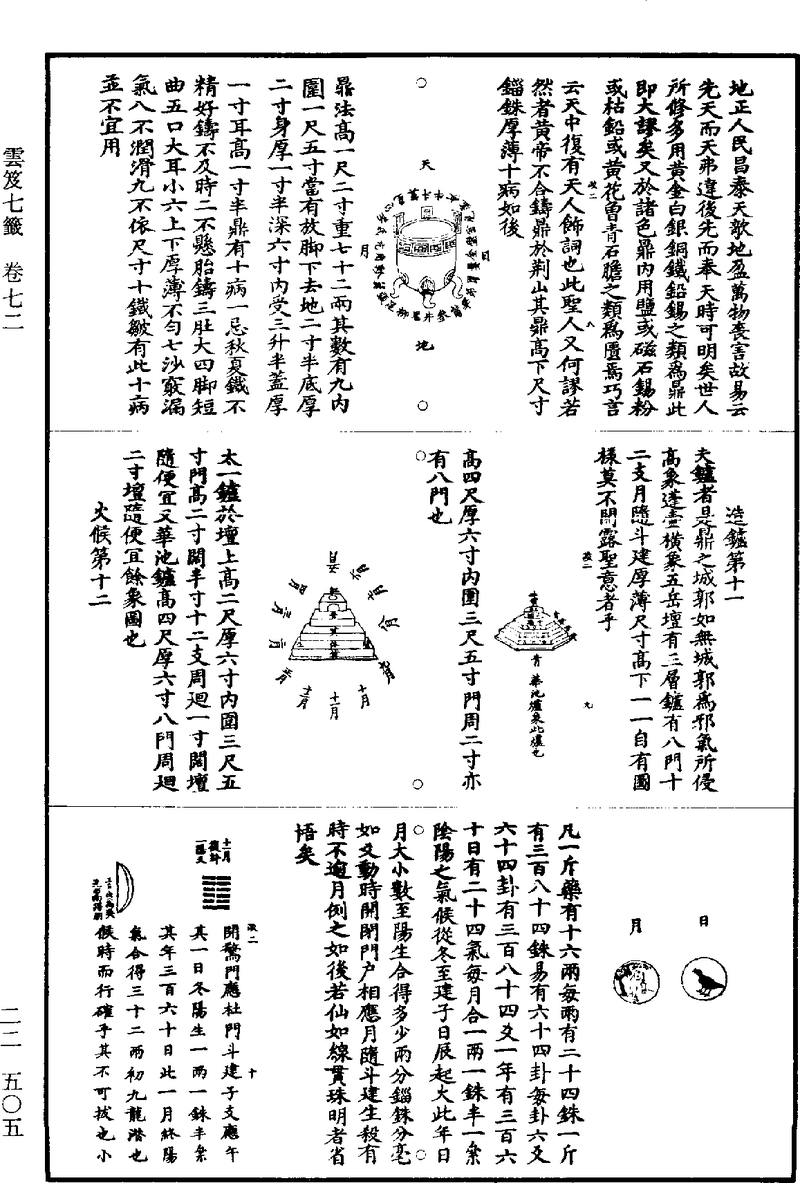 雲笈七籤 卷七二
二二 五〇五
地正人民昌泰天歆地盈萬物喪害故易云
先天而天弗違後先而奉天時可明矣世人
所修多用黃金白銀銅鐵鉛錫之類爲鼎此
即大謬矣又於諸色鼎內用鹽或磁石錫粉
或枯鉛或黃花曾青石膽之類爲匱焉巧言
云天中復有天人飾詞也此聖人又何謬若
然者黃帝不合鑄鼎於荆山其鼎高下尺寸
錙銖厚薄十病如後
天
月
地
鼎法高一尺二寸重七十二兩其數有九內
圍一尺五寸當有放脚下去地二寸半底厚
二寸身厚一寸半深六寸內受三升半蓋厚
一寸耳高一寸半鼎有十病一忌秋夏鐵不
精好鑄不及時二不懸胎鑄三肚大四脚短
曲五口大耳小六上下厚薄不勻七沙竅漏
氣八不潤滑九不依尺寸十鐵皺有此十病
並不宜用
造鑪第十一
夫鑪者是鼎之城郭如無城郭爲邪氣所侵
高象蓬壺橫象五岳壇有三層鑪有八門十
二支月隨斗建厚薄尺寸高下一一自有圖
樣莫不開露聖意者乎
青 華池爐象此爐也
高四尺厚六寸內圍三尺五寸門周二寸亦
有八門也
十月
十一月
十二月
太一鑪於壇上高二尺厚六寸內圍三尺五
寸門高二寸闊半寸十二支周迴一寸闊壇
隨便宜又華池鑪高四尺厚六寸八門周迴
二寸壇隨便宜餘象圖也
火候第十二
日
月
凡一斤藥有十六兩每兩有二十四銖一斤
有三百八十四銖易有六十四卦每卦六爻
六十四卦有三百八十四爻一年有三百六
十日有二十四氣每月合一兩一銖半一絫
陰陽之氣候從冬至建子日辰起火此年日
月大小數至陽生合得多少兩分錙銖分毫
如爻動時開閉門户相應月隨斗建生殺有
時不逾月例之如後若仙如線貫珠明者省
悟矣
十一月
復卦
開驚門應杜門斗建子支應午
其一日冬陽生一兩一銖半絫
其年三百六十日此一月終陽
氣合得三十二兩初九龍潛也
候時而行確乎其不可拔也小